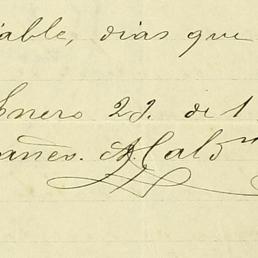 iable, dias que
Enero 29. de 1
añes. A. Cald